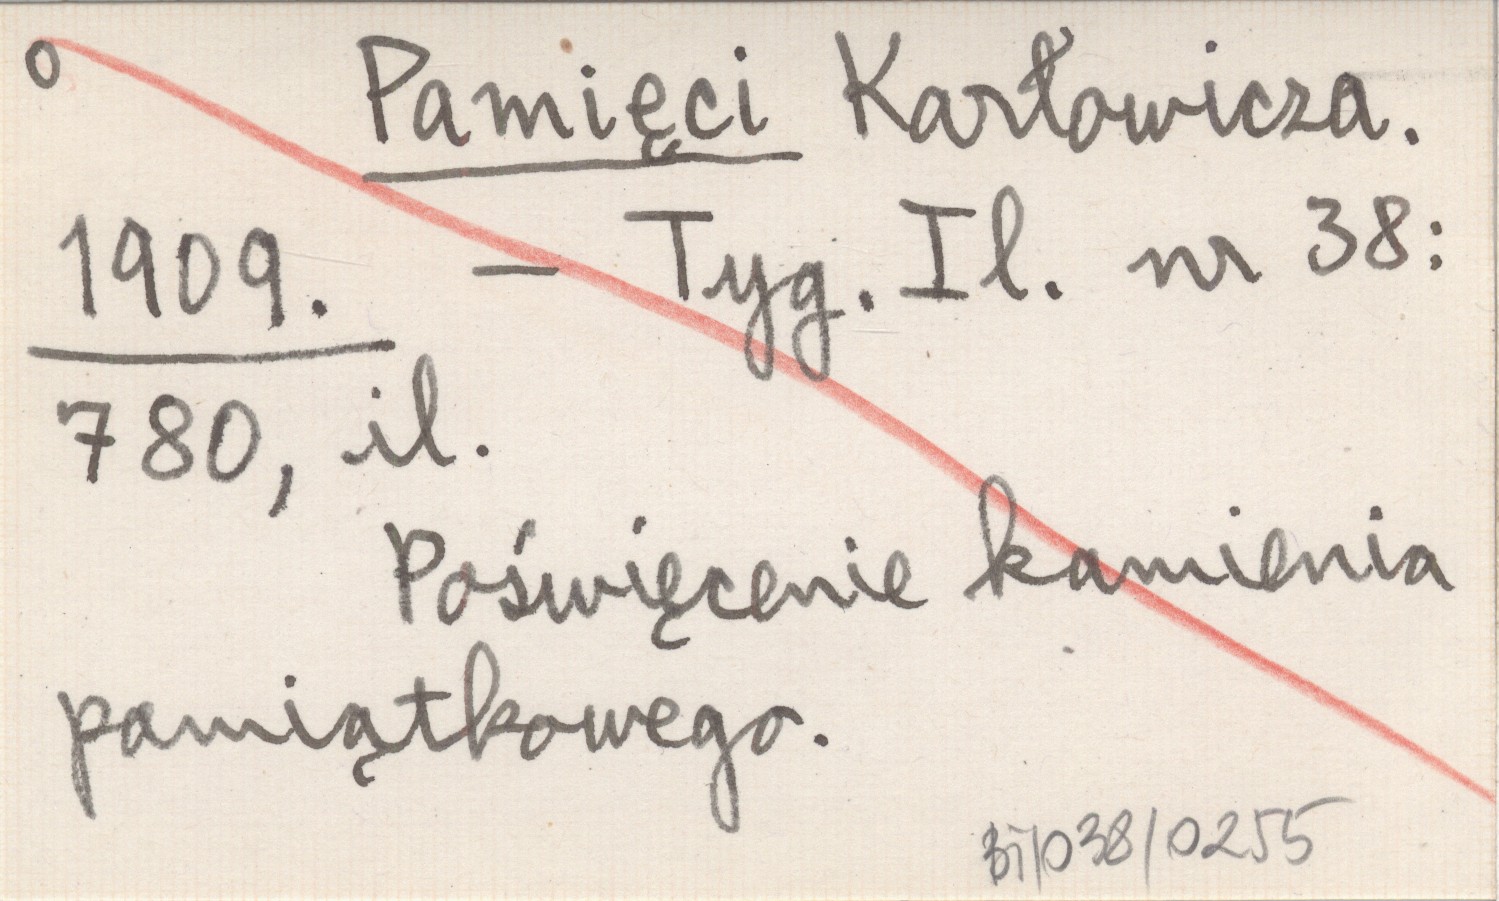 o Pamięci Karłowicza.
1909. – Tyg. Il. nr 38:
780, il.
Poświęcenie kamienia
pamiątkowego.
BI/038/0255